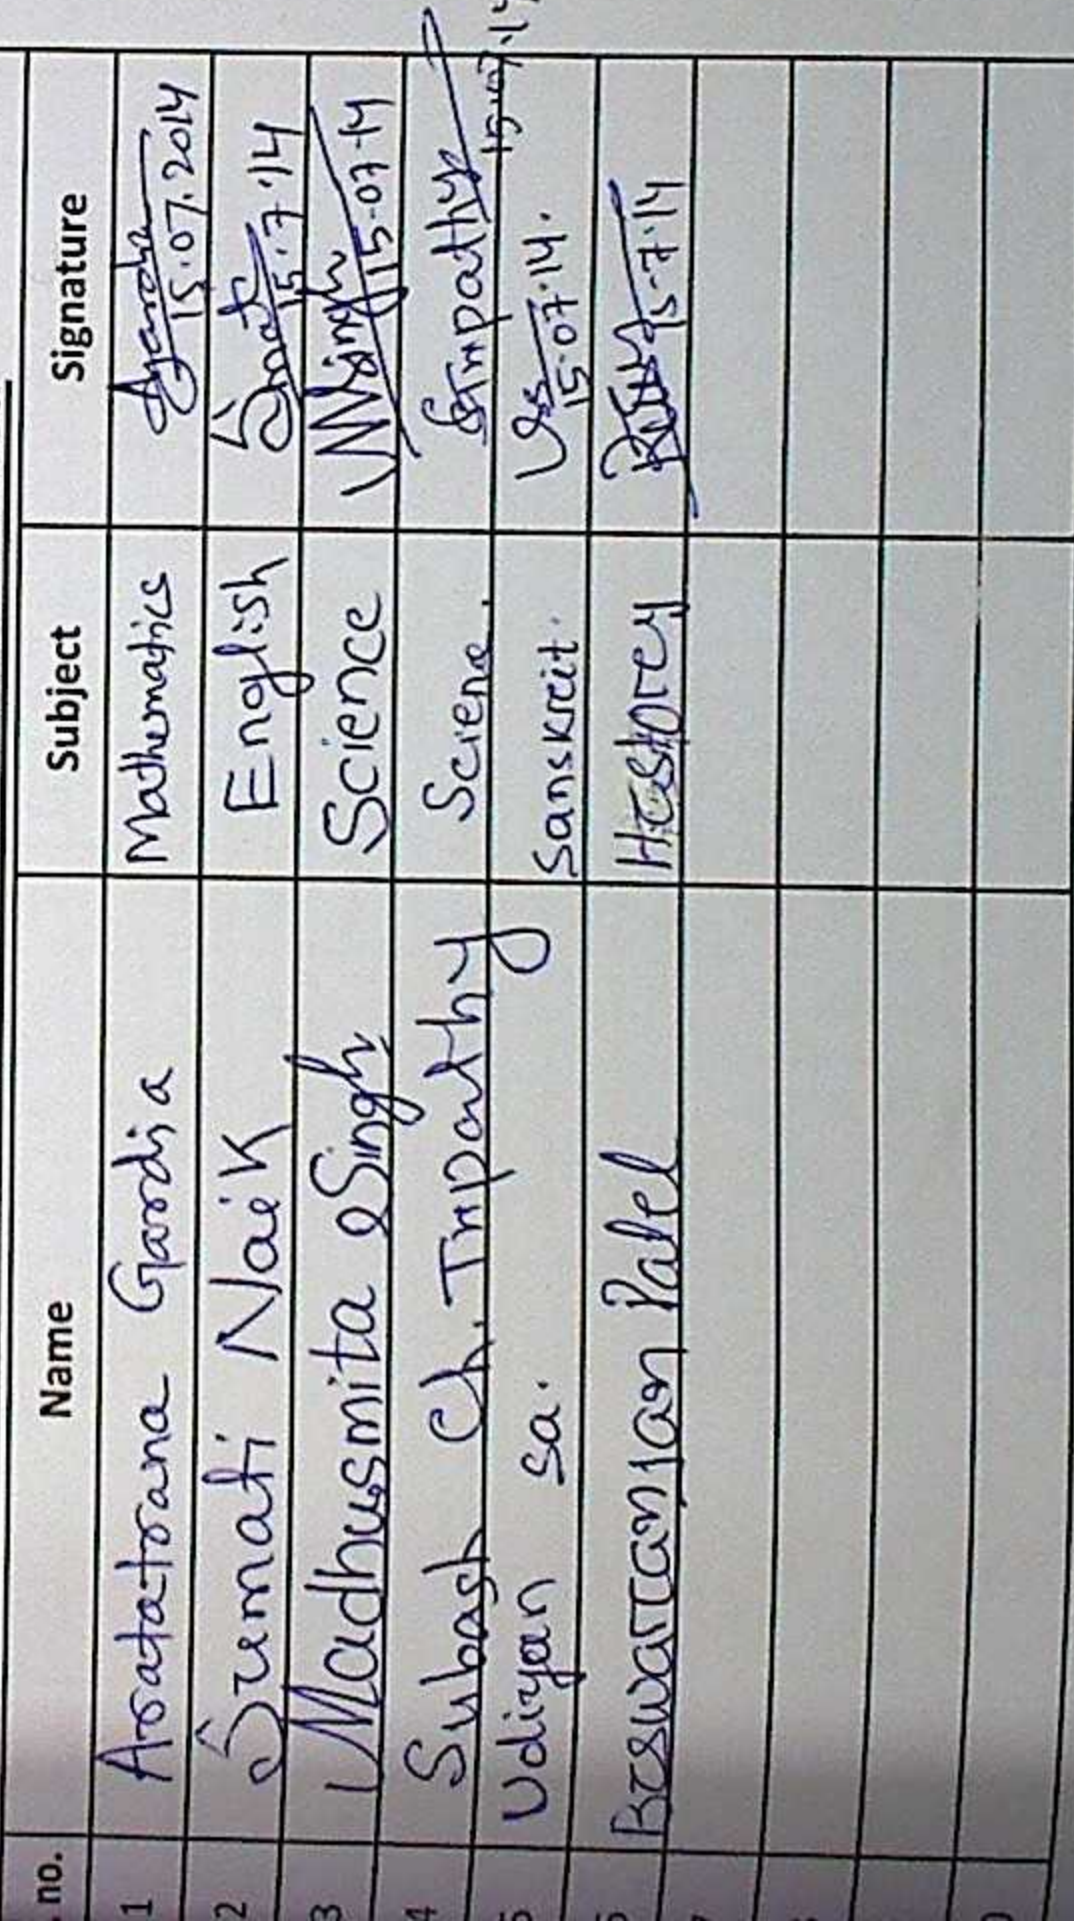 no. Name Subject Signature
1 Aratatrana Gardia Mathematics 15.07.2014
2 Sumati Naik English 15.7.14
3 Madhusmita Singh Science MSingh 15-07-14
4 Subash Ch. Tripathy Science. Tripathy 15.07.14
5 Udiyan sa. Sanskrit. 15.07.14.
6 Biswaranjan Patel History 15-7-14
7